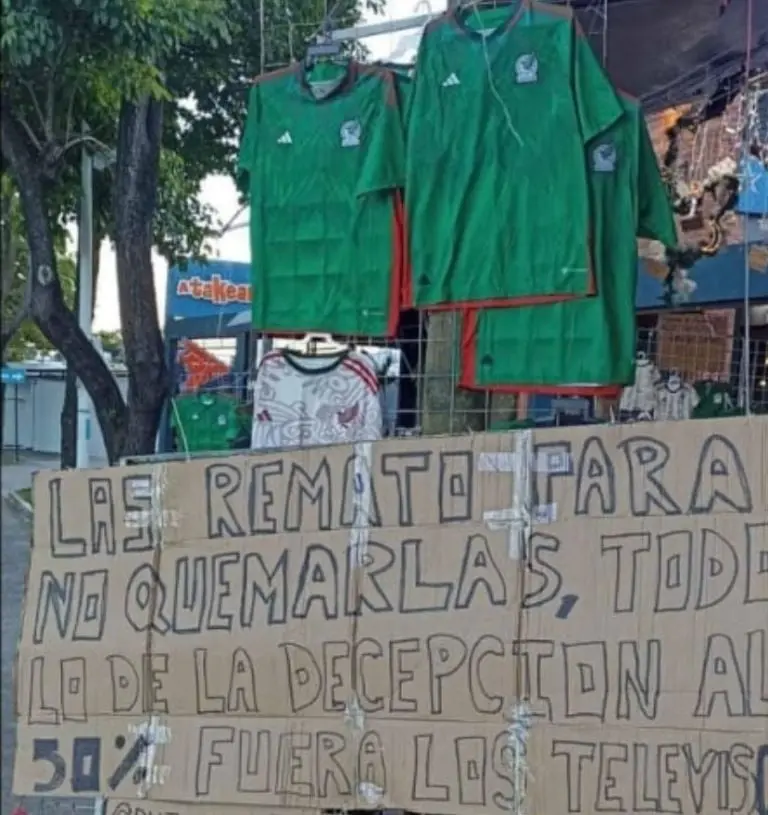 Atakea
LAS REMATO PARA
NO QUEMARLAS, TODO
LO DE LA DECEPCION AL
50% FUERA LOS TELEVIS